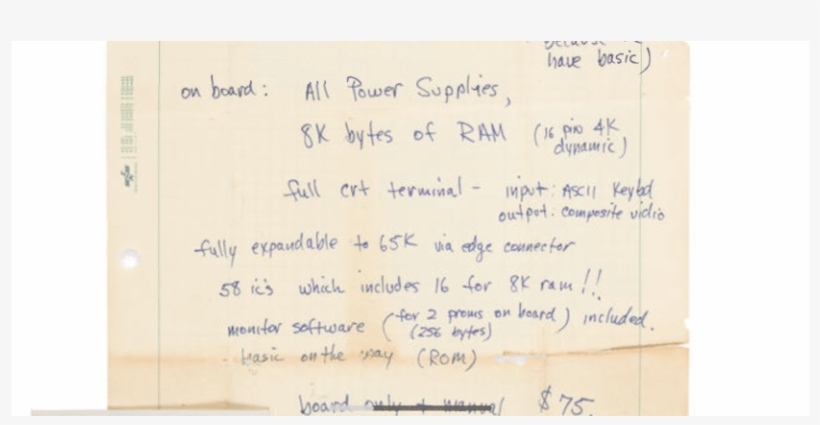 because
have basic)
on board: All Power Supplies,
8K bytes of RAM (16 pin 4K
dynamic)
full crt terminal - input: ASCII Keybd
output: composite vidio
fully expandable to 65K via edge connector
58 ic's which includes 16 for 8K ram!!
monitor software (for 2 proms on board) included.
(256 bytes)
basic on the way (ROM)
board only + manual $75.